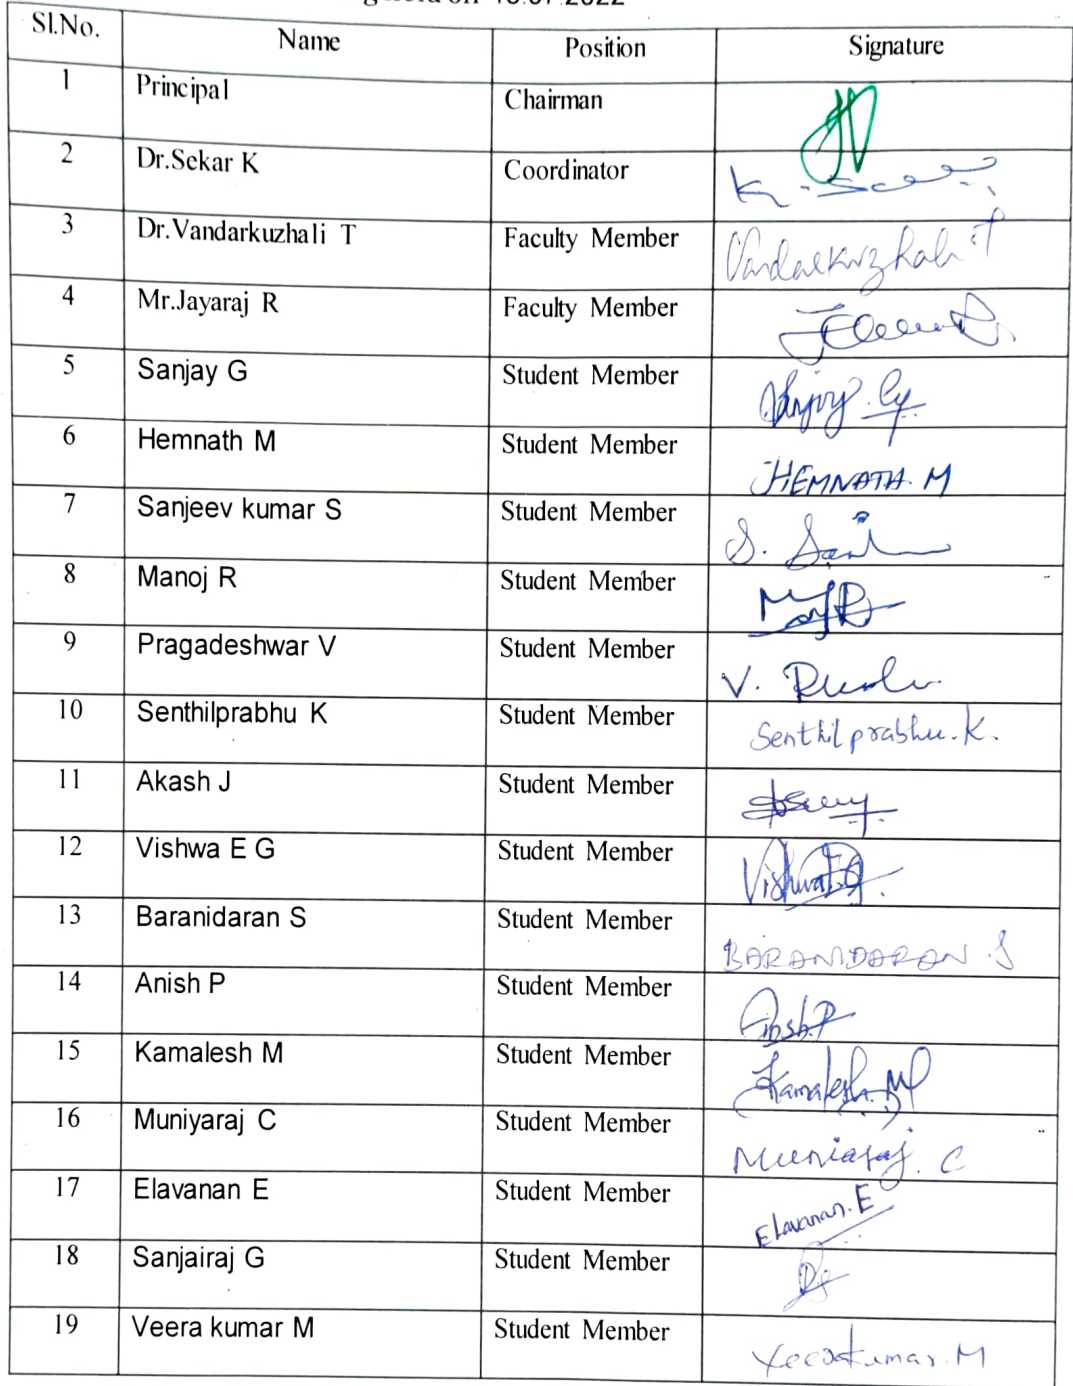 Sl.No. Name Position Signature
1 Principal Chairman
2 Dr.Sekar K Coordinator
3 Dr.Vandarkuzhali T Faculty Member Vandarkuzhali T
4 Mr.Jayaraj R Faculty Member
5 Sanjay G Student Member Sanjay. G
6 Hemnath M Student Member HEMNATH. M
7 Sanjeev kumar S Student Member
8 Manoj R Student Member
9 Pragadeshwar V Student Member
10 Senthilprabhu K Student Member Senthilprabhu. K.
11 Akash J Student Member
12 Vishwa E G Student Member Vishwa E G.
13 Baranidaran S Student Member BARANIDARAN .S
14 Anish P Student Member Anish.P
15 Kamalesh M Student Member Kamalesh. M
16 Muniyaraj C Student Member Muniaraj. C
17 Elavanan E Student Member Elavanan. E
18 Sanjairaj G Student Member
19 Veera kumar M Student Member Veerakumar. M